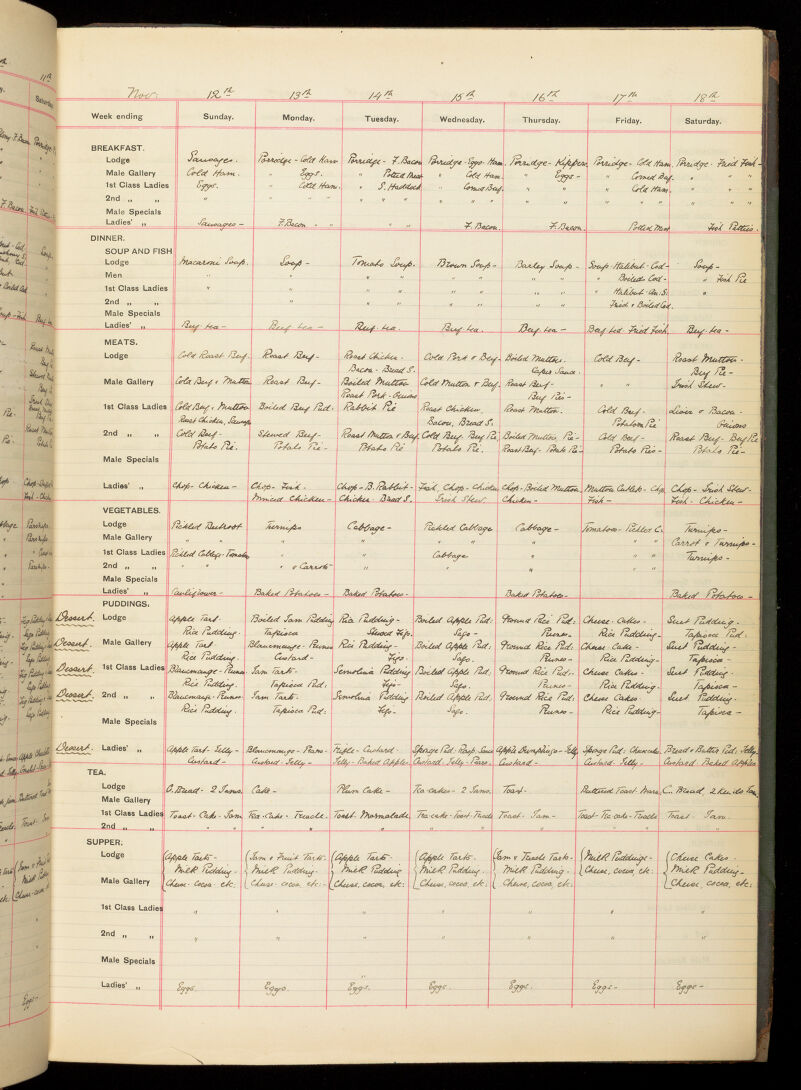 Nov. 12th 13th 14th 15th 16th 17th 18th
Week ending Sunday. Monday. Tuesday. Wednesday. Thursday. Friday. Saturday.
BREAKFAST.
Lodge Sausages. Porridge - Cold Ham Porridge - F. Bacon Porridge - Eggs - Ham. Porridge - Kippers. Porridge - Cold Ham. Porridge - Fried Fish -
Male Gallery Cold Ham. " Eggs. " Potted Meat " Cold Ham. " Eggs - " Corned Beef. " " "
1st Class Ladies Eggs. " Cold Ham. " S. Haddock " Corned Beef. " " " Cold Ham. " " "
2nd " " " " " " " " " " " " " " " " " " " "
Male Specials
Ladies' " Sausages - F. Bacon - " " " F. Bacon. F. Bacon. Potted Meat Fish Patties.
DINNER.
SOUP AND FISH
Lodge Macaroni Soup. Soup - Tomato Soup. Brown Soup - Barley Soup - Soup - Halibut - Cod - Soup -
Men " " " " " " " " " " " Boiled Cod - " Fish Pie
1st Class Ladies " " " " " " " " " Halibut An. S. "
2nd " " " " " " " " " Fried & Boiled Cod.
Male Specials
Ladies' " Beef tea - Beef tea - Beef tea. Beef tea. Beef tea - Beef tea Fried Fish. Beef tea -
MEATS.
Lodge Cold Roast Beef. Roast Beef - Roast Chicken. Cold Pork & Beef - Boiled Mutton. Cold Beef - Roast Mutton -
Bacon - Bread S. Caper Sauce. Beef Pie -
Male Gallery Cold Beef & Mutton Roast Beef - Boiled Mutton Cold Mutton & Beef. Roast Beef - " " Irish Stew -
Roast Pork - Onions Beef Pie -
1st Class Ladies Cold Beef, Mutton Boiled Beef Pud. Rabbit Pie Roast Chicken. Roast Mutton. Cold Beef - Liver & Bacon -
Roast Chicken, Sausage Bacon, Bread S. Potatoes Pie Onions
2nd " " Cold Beef - Stewed Beef - Roast Mutton & Beef. Cold Beef, Beef Pie. Boiled Mutton, Pie - Cold Beef - Roast Beef - Beef Pie
Potato Pie. Potato Pie - Potato Pie Potato Pie. Roast Beef - Potato Pie - Potato Pie - Potato Pie -
Male Specials
Ladies' " Chop - Chicken - Chop - Fish. Chop - B. Rabbit - Fish, Chop - Chicken Chop - Boiled Mutton Mutton Cutlets - Chop Chop - Irish Stew -
Minced Chicken - Chicken - Bread S. Irish Stew. Chicken - Fish - Fish - Chicken -
VEGETABLES.
Lodge Pickled Beetroot Turnips Cabbage - Pickled Cabbage Cabbage - Tomatoes - Pickled C. Turnips -
Male Gallery " " " " " " " " Carrot & Turnips -
1st Class Ladies Pickled Cabbage - Tomatoes " " Cabbage " " " Turnips -
2nd " " " " " & Carrots " " " " " "
Male Specials
Ladies' " Cauliflower - Baked Potatoes - Baked Potatoes - Baked Potatoes - Baked Potatoes -
PUDDINGS.
Dessert. Lodge Apple Tart. Boiled Jam Pudding Rice Pudding - Boiled Apple Pud: Ground Rice Pud: Cheese Cakes - Suet Pudding -
Rice Pudding - Tapioca Stewed Figs. Sago - Prunes - Rice Pudding - Tapioca Pud.
Dessert. Male Gallery Apple Tart. Blancmange - Prunes Rice Pudding - Boiled Apple Pud. Ground Rice Pud: Cheese Cake - Suet Pudding -
Rice Pudding Custard - Figs. Sago. Prunes - Rice Pudding - Tapioca -
Dessert. 1st Class Ladies Blancmange - Prunes Jam Tart - Semolina Pudding Boiled Apple Pud. Ground Rice Pud. - Cheese Cakes - Suet Pudding -
Rice Pudding Tapioca Pud: Figs - Sago. Prunes - Rice Pudding - Tapioca -
Dessert. 2nd " " Blancmange - Prunes Jam Tart. Semolina Pudding Boiled Apple Pud. Ground Rice Pud: Cheese Cakes - Suet Pudding -
Rice Pudding. Tapioca Pud: Figs - Sago. Prunes - Rice Pudding - Tapioca -
Male Specials
Dessert. Ladies' " Apple Tart - Jelly - Blancmange - Prunes - Trifle - Custard - Sponge Pud: Rasp. Sauce Apple Dumplings - Jelly Sponge Pud: Cheesecake. Bread & Butter Pud. Jelly.
Custard - Custard - Jelly - Jelly - Baked Apples. Custard - Jelly - Pears. Custard - Custard - Jelly - Custard - Baked Apples
TEA.
Lodge C. Bread - 2 Jams. Cake - Plum Cake - Tea-cakes - 2 Jams. Toast - Buttered Toast C. Bread, 2 kinds Jam.
Male Gallery
1st Class Ladies Toast - Cake - Jam Tea-cake - Treacle. Toast. Marmalade. Tea-cake - Toast - Treacle Toast - Jam - Toast - Tea-cake - Treacle Toast - Jam.
2nd " " " " " " " " " " " "
SUPPER.
Lodge Apple Tarts - Jam & Fruit Tarts. Apple Tarts - Apple Tarts. Jam & Treacle Tarts - Milk Puddings - Cheese Cakes -
Milk Pudding - Milk Pudding. Milk Pudding Milk Pudding. Milk Pudding - Cheese, cocoa, etc: Milk Pudding -
Male Gallery Cheese - cocoa - etc: Cheese - cocoa etc: - Cheese, cocoa, etc: Cheese, cocoa, etc: Cheese, cocoa, etc. Cheese, cocoa, etc:
1st Class Ladies " " " " " " "
2nd " " " " " " " " "
Male Specials "
Ladies' " Eggs. Eggs. Eggs. Eggs. Eggs. Eggs - Eggs -